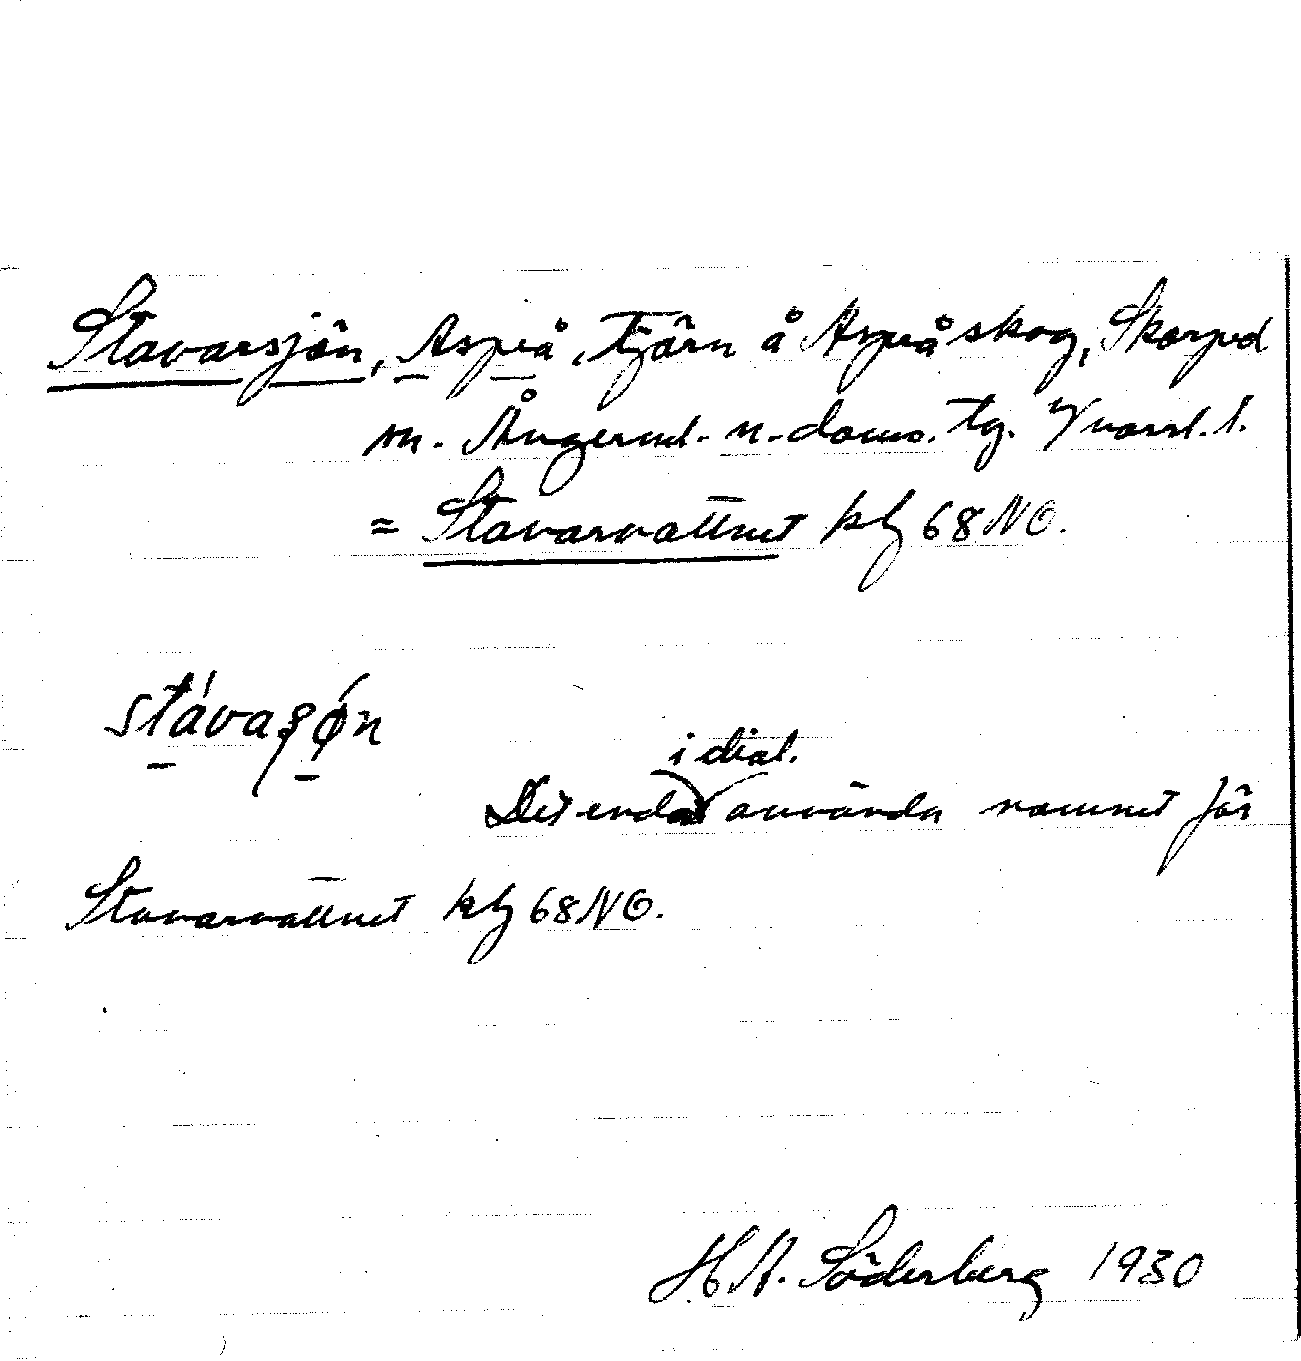 Stavarsjön, Aspeå, tjärn å Aspeå skog, Skorped
sn. Ångerml. n. doms. tg. Västernorrl. l.
= Stavarvattnet kbl 68 NO.
stávaşǿn
i dial.
Det enda använda namnet för
Stavarvattnet kbl 68 NO.
H A. Söderberg 1930